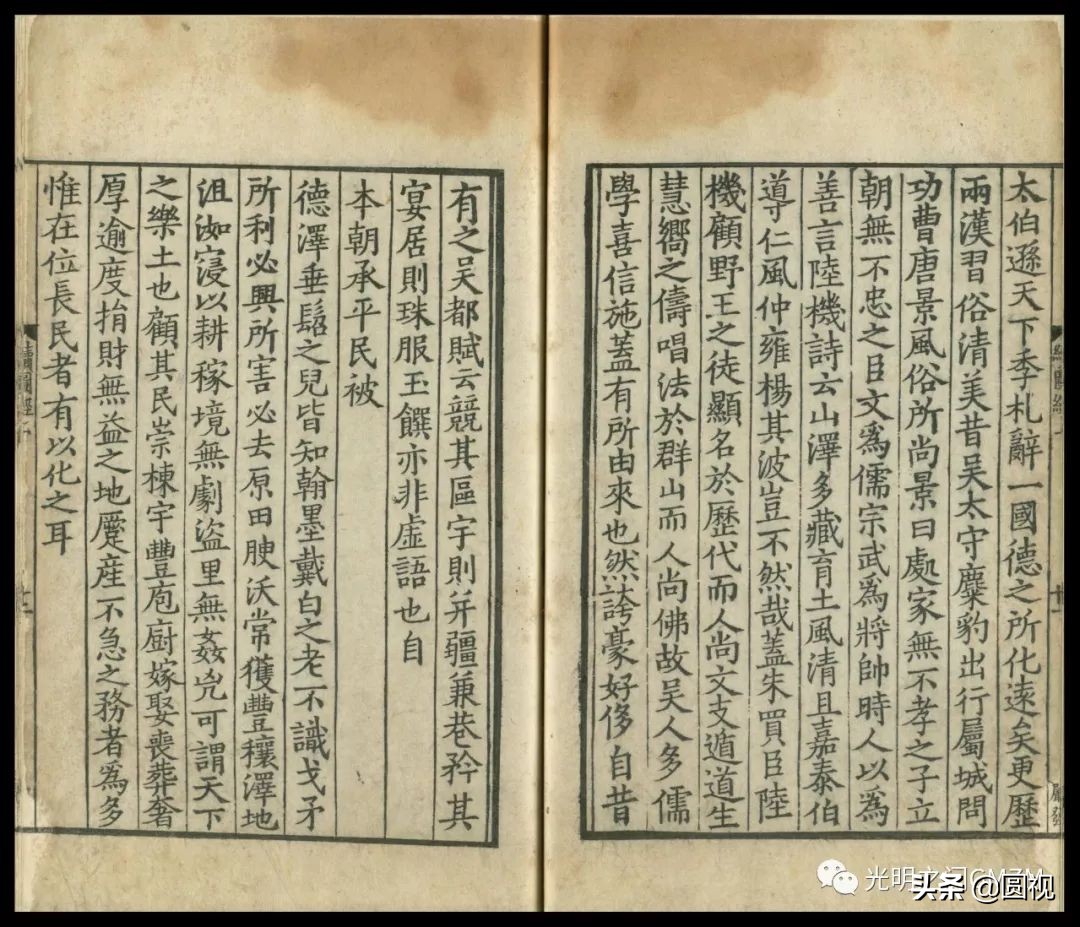 太伯遜天下季札辭一國德之所化遠矣更歷
兩漢習俗清美昔吳太守麋豹出行屬城問
功曹唐景風俗所尚景曰處家無不孝之子立
朝無不忠之臣文爲儒宗武爲將帥時人以爲
善言陸機詩云山澤多藏育土風清且嘉泰伯
導仁風仲雍楊其波豈不然哉蓋朱買臣陸
機顧野王之徒顯名於歷代而人尚文支遁道生
慧嚮之儔唱法於群山而人尚佛故吳人多儒
學喜信施蓋有所由來也然誇豪好侈自昔
有之吳都賦云競其區宇則并疆兼巷矜其
宴居則珠服玉饌亦非虛語也自
本朝承平民被
德澤垂髫之兒皆知翰墨戴白之老不識戈矛
所利必興所害必去原田腴沃常獲豐穰澤地
沮洳寖以耕稼境無劇盜里無姦兇可謂天下
之樂土也顧其民崇棟宇豐庖廚嫁娶喪葬奢
厚逾度捐財無益之地蹷產不急之務者爲多
惟在位長民者有以化之耳
頭条 @圆视